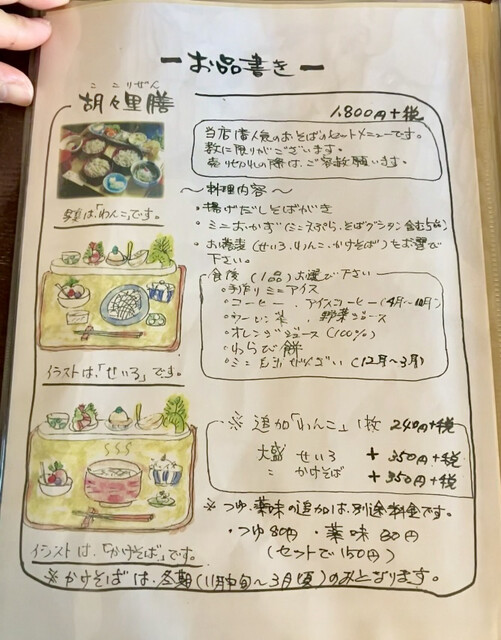 ーお品書きー
ここりぜん
胡々里膳
1,800円+税
当店1番人気のおそばのセットメニューです。
数に限りがございます。
売り切れの際は、ご容赦願います。
写真は、「わんこ」です。
～料理内容～
・揚げだしそばがき
・ミニおかず(ミニ天ぷら、そばグラタン含む5品)
・お蕎麦(せいろ、わんこ、かけそば)をお選び
下さい。
食後(1品)お選び下さい
・手作りミニアイス
・コーヒー、アイスコーヒー(4月～10月)
・ウーロン茶、野菜ジュース
・オレンジジュース(100%)
・わらび餅
・ミニ ぜんざい(12月～3月)
イラストは、「せいろ」です。
※追加「わんこ」1枚 240円+税
大盛 せいろ +350円+税
〃 かけそば +350円+税
※つゆ、薬味の追加は、別途料金です。
・つゆ80円・薬味80円
(セットで150円)
イラストは、「かけそば」です。
※かけそばは、冬期(11月中旬～3月頃)のみとなります。